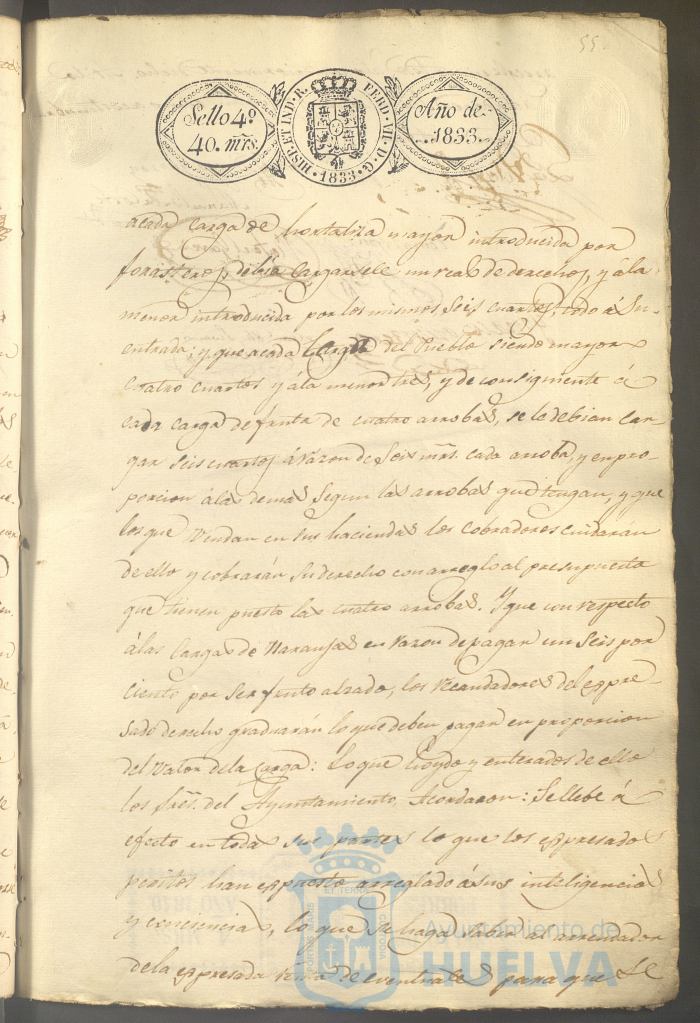 55
Sello 4º
40. mrs.
HISP. ET IND. R. FERD. VII. D. G.
·1833·
Año de
1833.
acada Carga de hortaliza mayor introducida por
forasteros, debia Cargarsele un real de derechos, y á la
menor introducida por los mismos Seis cuartos; todo á su
entrada; y que acada Carga del Pueblo siendo mayor
cuatro cuartos y á la menor tres, y de consiguiente á
cada carga de fruta de cuatro arrobas, se le debian car-
gar seis cuartos á razon de Seis mrs. cada arroba, y en pro-
porcion á las demas Segun las arrobas que tengan, y que
los que Vendan en sus haciendas los Cobradores cuidarán
de ello y cobrarán su derecho con arreglo al presupuesto
que tienen puesto las cuatro arrobas. Y que con respecto
á las Cargas de Naranjas en razon de pagar un Seis por
Ciento por Ser fruto alzado, los Recaudadores del espre
sado derecho graduarán lo que deben pagar en proporcion
del Valor de la Carga: Lo que hoydo y enterados de ello
los Sres. del Ayuntamiento, Acordaron: Se llebe á
efecto en todas sus partes lo que los espresados
peritos han espuesto arreglado á sus inteligencias
y conciencias, lo que se haga saber al arrendador
de la espresada renta de eventuales para que se
Ayuntamiento de
HUELVA